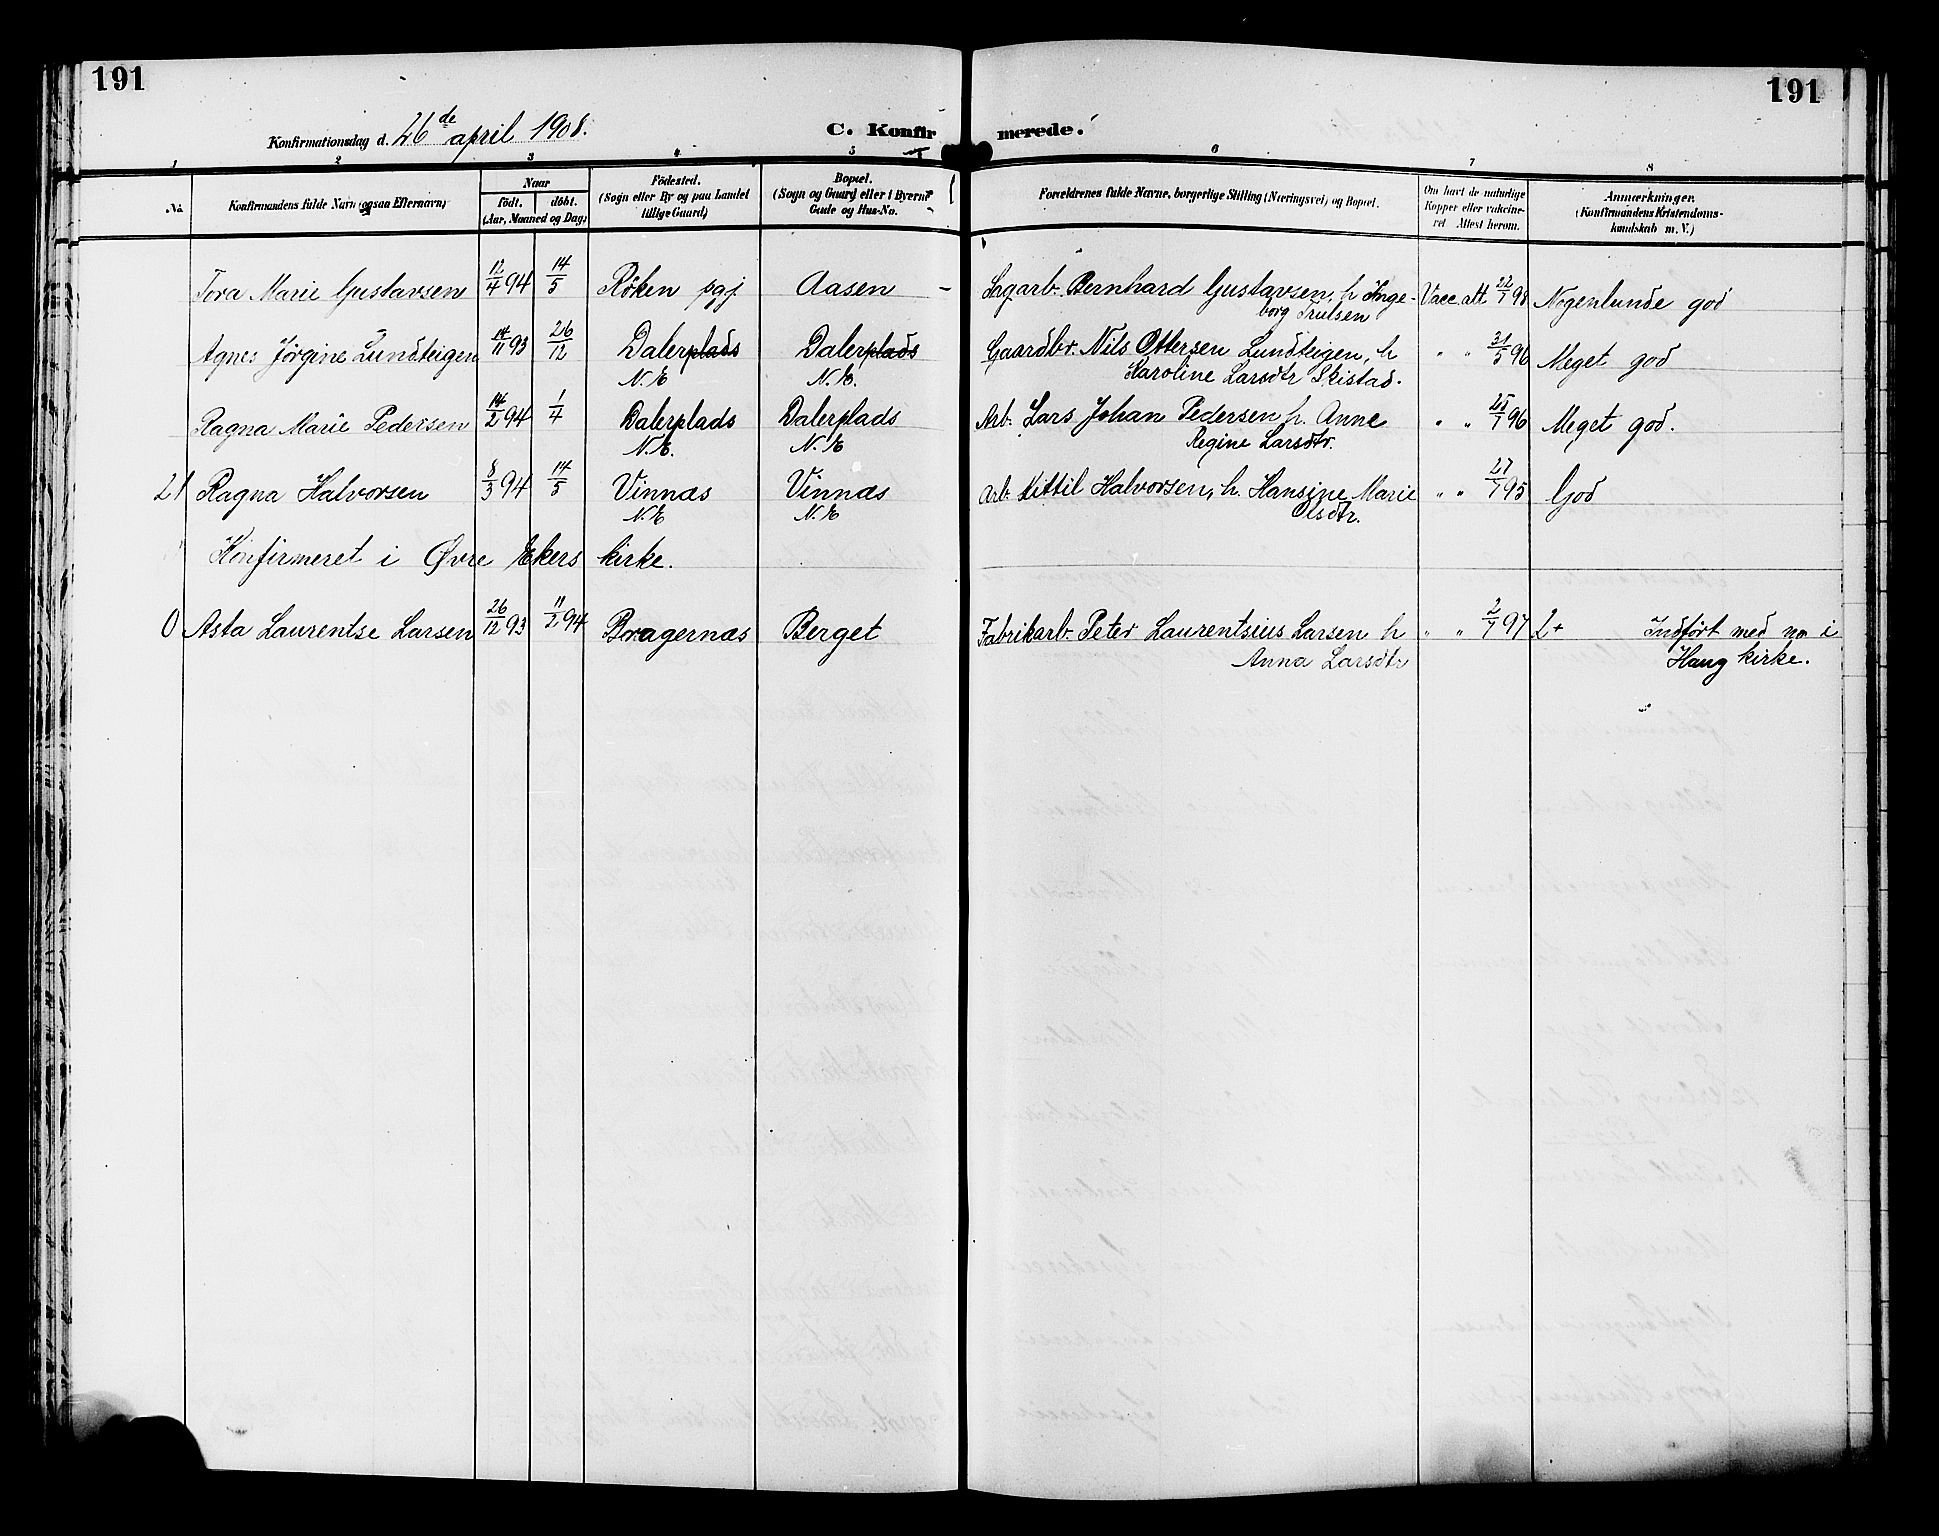 191
191
Konfirmationsdag d. 26de april 1908.
C. Konfirmerede.
1 2 3 4 5 6 7 8
No.
Konfirmandens fulde Navn (ogsaa Efternavn)
Naar
født. døbt.
(Aar, Maaned og Dag)
Fødested.
(Sogn eller By og paa Landet
tillige Gaard)
Bopæl.
(Sogn og Gaard eller i Byerne
Gade og Hus-No.
Forældrenes fulde Navne, borgerlige Stilling (Næringsvei) og Bopæl.
Om havt de naturlige
Kopper eller vakcine-
ret Attest herom.
Anmærkninger.
(Konfirmandens Kristendoms-
kundskab m. V.)
Tora Marie Gustavsen 12/4 94 14/5 Røken pgj. Aasen - Sagarb. Bernhard Gustavsen, h Inge- Vacc. att 22/7 98 Nogenlunde god
borg Trulsen
Agnes Jørgine Lundteigen 14/11 93 26/12 Dalerplads Dalerplads Gaardbr. Nils Ottersen Lundteigen, h " " 31/5 96 Meget god
N.E N.E. Karoline Larsdtr Skistad.
Ragna Marie Pedersen 14/2 94 1/4 Dalerplads Dalerplads Arb. Lars Johan Pedersen h. Anne " " 25/7 96 Meget god.
N.E. N.E Regine Larsdtr.
21 Ragna Halvorsen 8/3 94 14/5 Vinnæs Vinnæs Arb. Kittil Halvorsen, h. Hansine Marie " " 27/7 95 God
N.E N.E Olsdtr.
Konfirmeret i Øvre Ekers kirke.
0 Asta Laurentse Larsen 26/12 93 11/2 94 Bragernæs Berget Fabrikarb. Peter Laurentsius Larsen h " " 2/7 97 2+ Indført med no i
Anna Larsdtr Haug kirke.